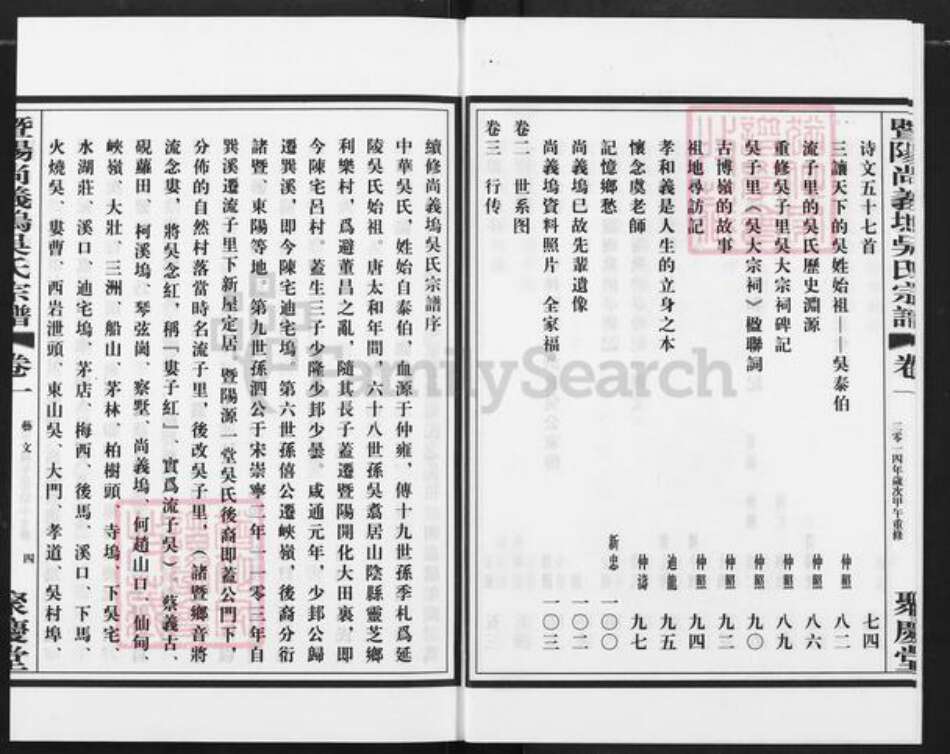 暨陽尚義塢吳氏宗譜 卷一 二零一四年歲次甲午重修 聚慶堂
诗文五十七首 七四
三讓天下的吳姓始祖——吳泰伯 仲照 八二
流子里的吳氏歷史淵源 仲照 八六
重修吳子里吳大宗祠碑記 仲照 八九
吳子里〈吳大宗祠〉楹聯詞 仲照 九〇
古博嶺的故事 仲照 九三
祖地尋訪記 仲照 九四
孝和義是人生的立身之本 迪龍 九五
懷念虞老師 仲濤 九七
記憶鄉愁 新忠 一〇〇
尚義塢已故先輩遺像 一〇二
尚義塢資料照片、全家福 一〇三
卷二 世系图
卷三 行传
續修尚義塢吳氏宗譜序
中華吳氏、姓始自泰伯、血源于仲雍、傳十九世孫季札爲延
陵吳氏始祖。唐太和年間、六十八世孫吳翥居山陰縣靈芝鄉
利樂村、爲避董昌之亂、隨其長子蓋遷暨陽開化大田裏、即
今陳宅呂村。蓋生三子少隆少邦少曇。咸通元年、少邦公歸
遷巽溪、即今陳宅迪宅塢、第六世孫僖公遷峽嶺、後裔分衍
諸暨、東陽等地、第九世孫泗公于宋崇寧二年一一零三年自
巽溪遷流子里下新屋定居、暨陽源一堂吳氏後裔即蓋公門下、
分佈的自然村落當時名流子里、後改吳子里、（諸暨鄉音將
流念婁、將吳念紅、稱「婁子紅」、實爲流子吳）、蔡義古、
硯蘿田、柯溪塢、琴弦崗、察墅、尚義塢、何趙山口、仙甸、
峽嶺、大壯、三洲、船山、茅林、柏樹頭、寺塢、下吳宅、
水湖莊、溪口、迪宅塢、茅店、梅西、後馬、溪口、下馬、
火燒吳、婁曹、西岩泄頭、東山吳、大門、孝道、吳村埠、
暨陽尚義塢吳氏宗譜 卷一 藝文 四 聚慶堂
FamilySearch